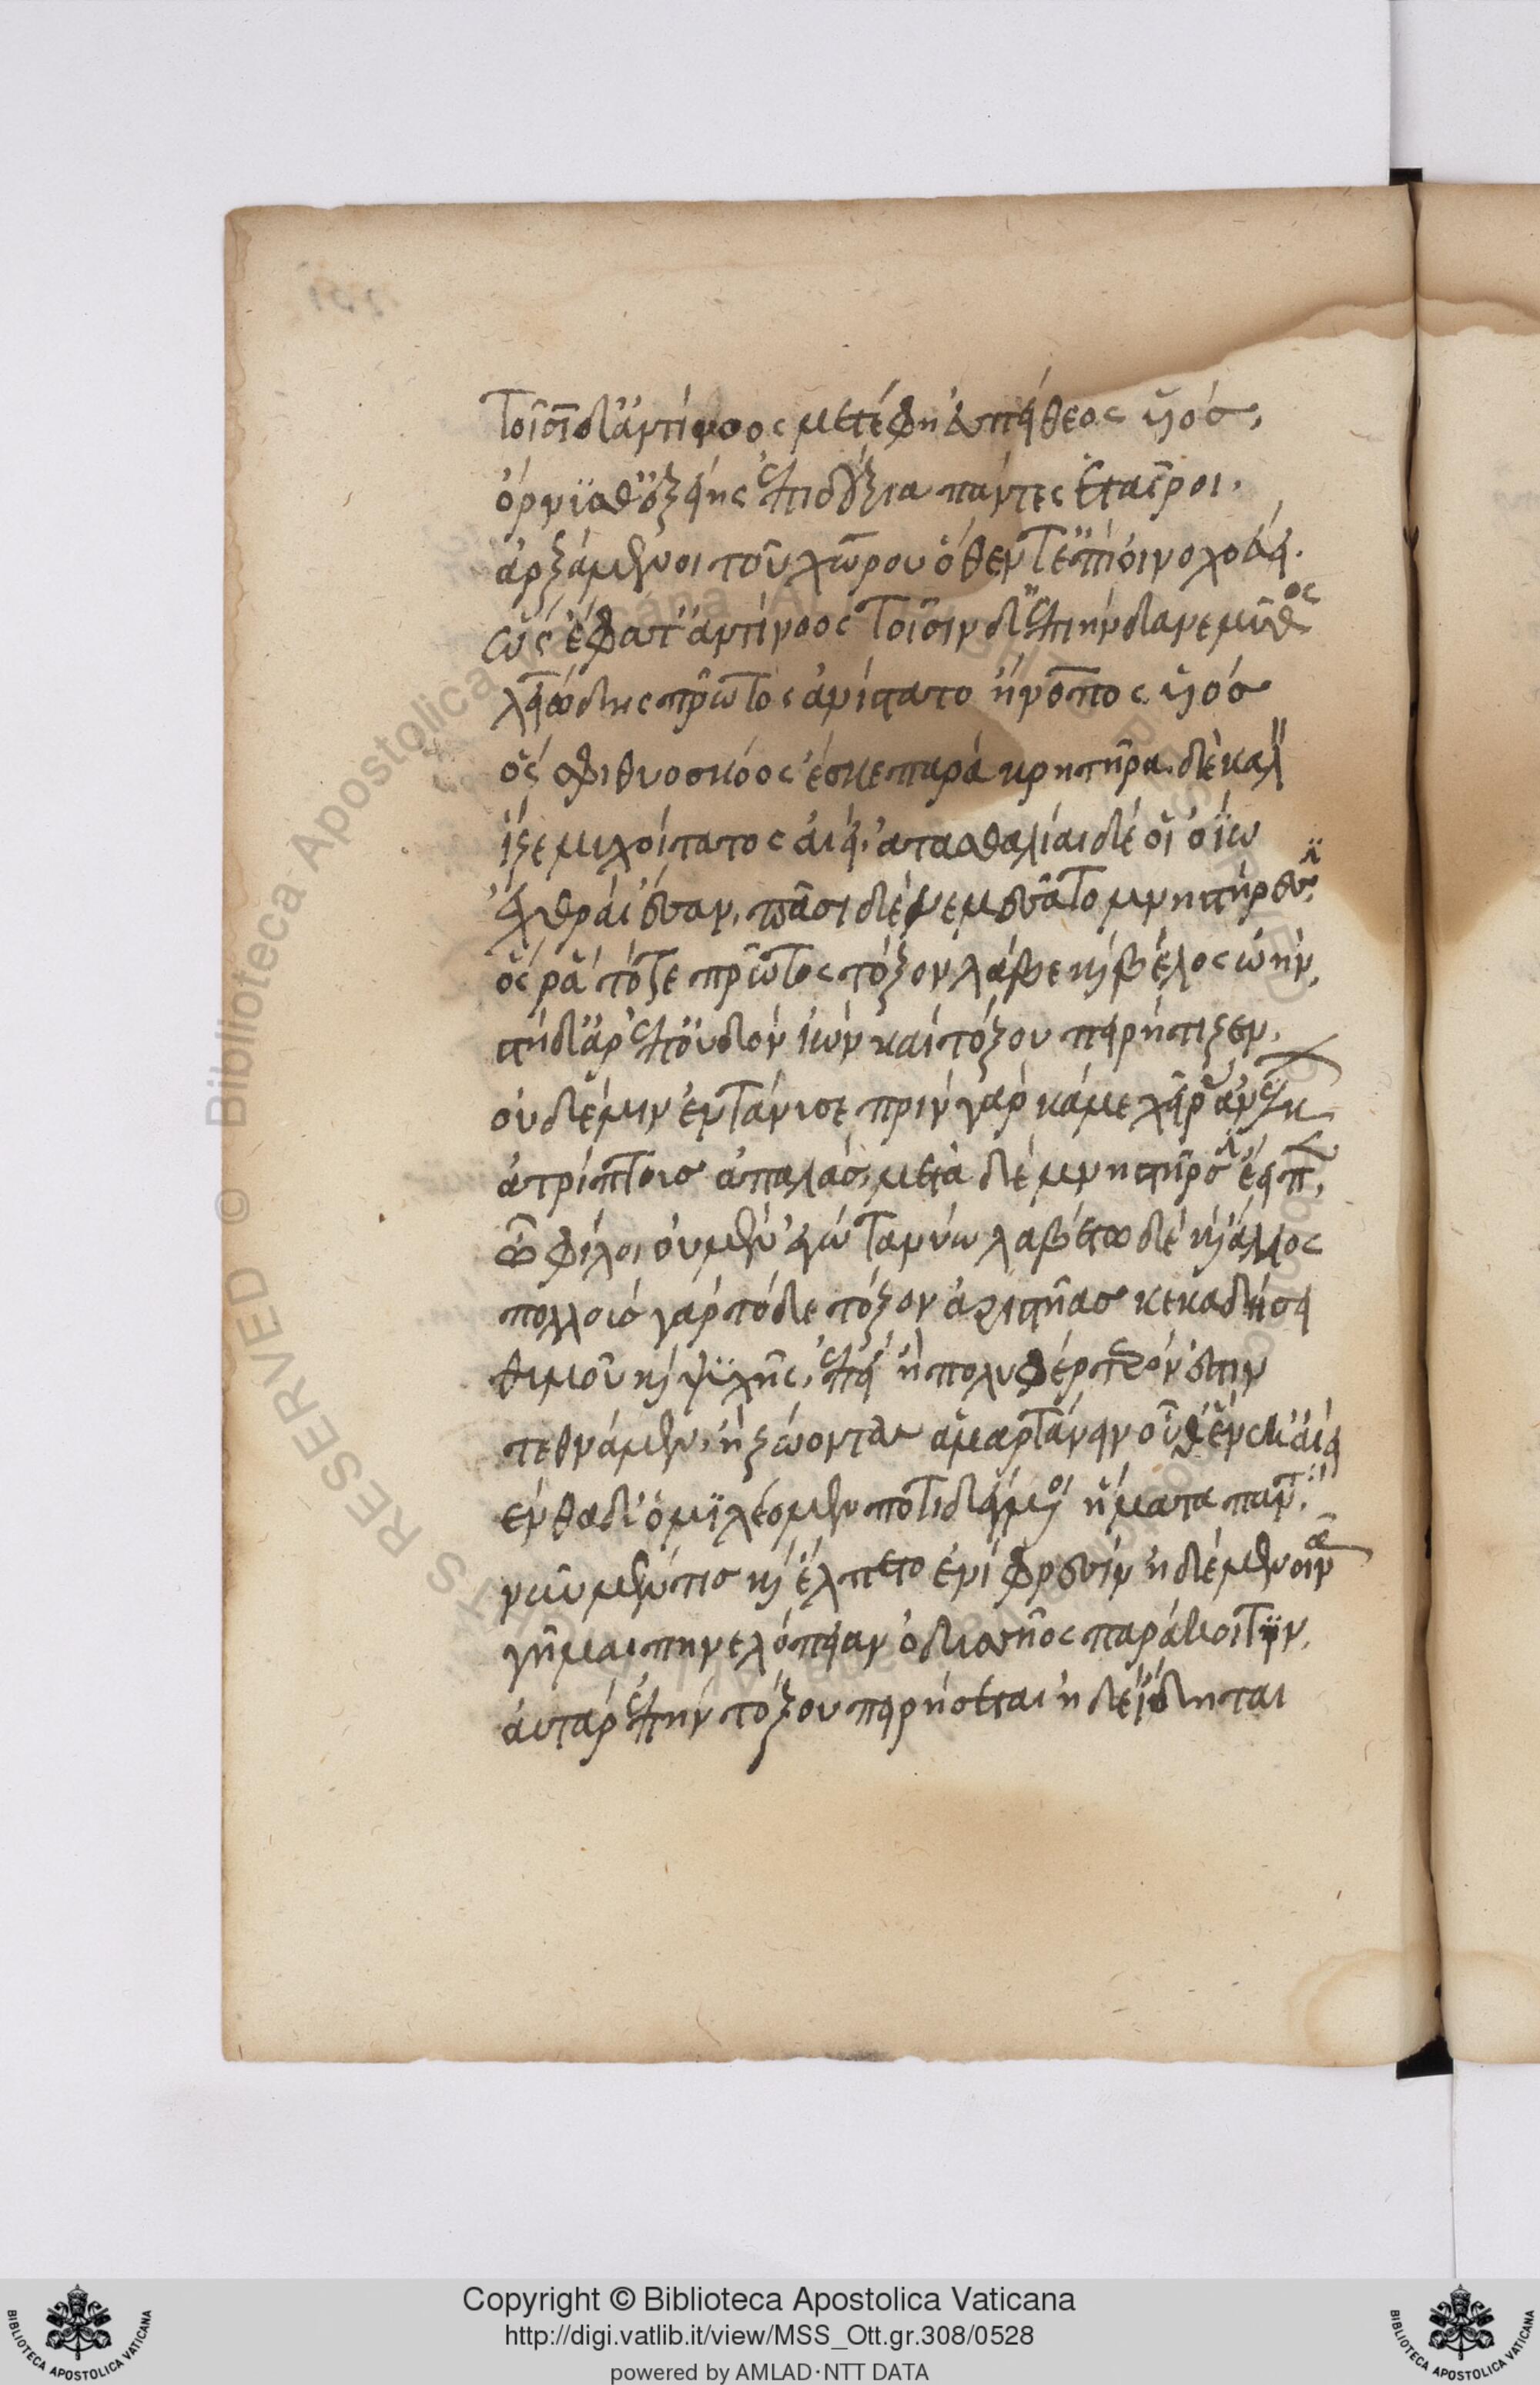 Τοῖσι δ' ἀντίνοος μετέφη εὐπείθεος υἱός,
ὄρνυσθ' ἑξείης ἐπιδέξια πάντες ἑταῖροι.
ἀρξάμενοι τοῦ χώρου ὅθεν τ' ἐπιοινοχοεύει.
ὣς ἔφατ' ἀντίνοος τοῖσιν δ' ἐπιήνδανε μῦθος
λειώδης πρῶτος ἀνίστατο ἤνοπος υἱός
ὅς σφι θυοσκόος ἔσκε παρά κρητῆρα δὲ καλ
ἷζε μυχοίτατος αἰεί. ἀτασθαλίαι δέ οἱ οἴω
ἐχθραί ἔσαν. πᾶσι δὲ νεμεσσᾶτο μνηστήρεσσι
ὅς ρα τότε πρῶτος τόξον λάβε καὶ βέλος ὠκύν,
στῆ δ' ἄρ' ἐπ' οὐδόν ἰών καί τόξου πειρήτιζεν.
οὐδέ μιν ἐντάνυσε πρίν γάρ κάμε χεῖρας ἀνέλκων
ἀτρίπτους ἀπαλάς, μετὰ δέ μνηστῆρσιν ἔειπεν,
ὦ φίλοι οὐ μὲν ἐγώ τανύω λαβέτω δέ καὶ ἄλλος
πολλούς γάρ τόδε τόξον ἀριστῆας κεκαδήσει
θυμοῦ καὶ ψυχῆς, ἐπεί ἦ πολύ φέρτερόν ἐστιν
τεθνάμεν, ἢ ζώοντας ἁμαρτάνειν οὗ θ' ἕνεκ' αἰεί
ἐνθάδ' ὁμιλέομεν ποτιδέγμενοι ἤματα πάντα.
νῦν μέν τις καὶ ἔλπετο ἐνί φρεσίν ἠδέ μενοινᾶ
γῆμαι πηνελόπειαν ὀδυσσῆος παράκοιτιν,
αὐτάρ ἐπήν τόξου πειρήσεται ἠδέ ἴδηται
Copyright © Biblioteca Apostolica Vaticana
http://digi.vatlib.it/view/MSS_Ott.gr.308/0528
powered by AMLAD·NTT DATA